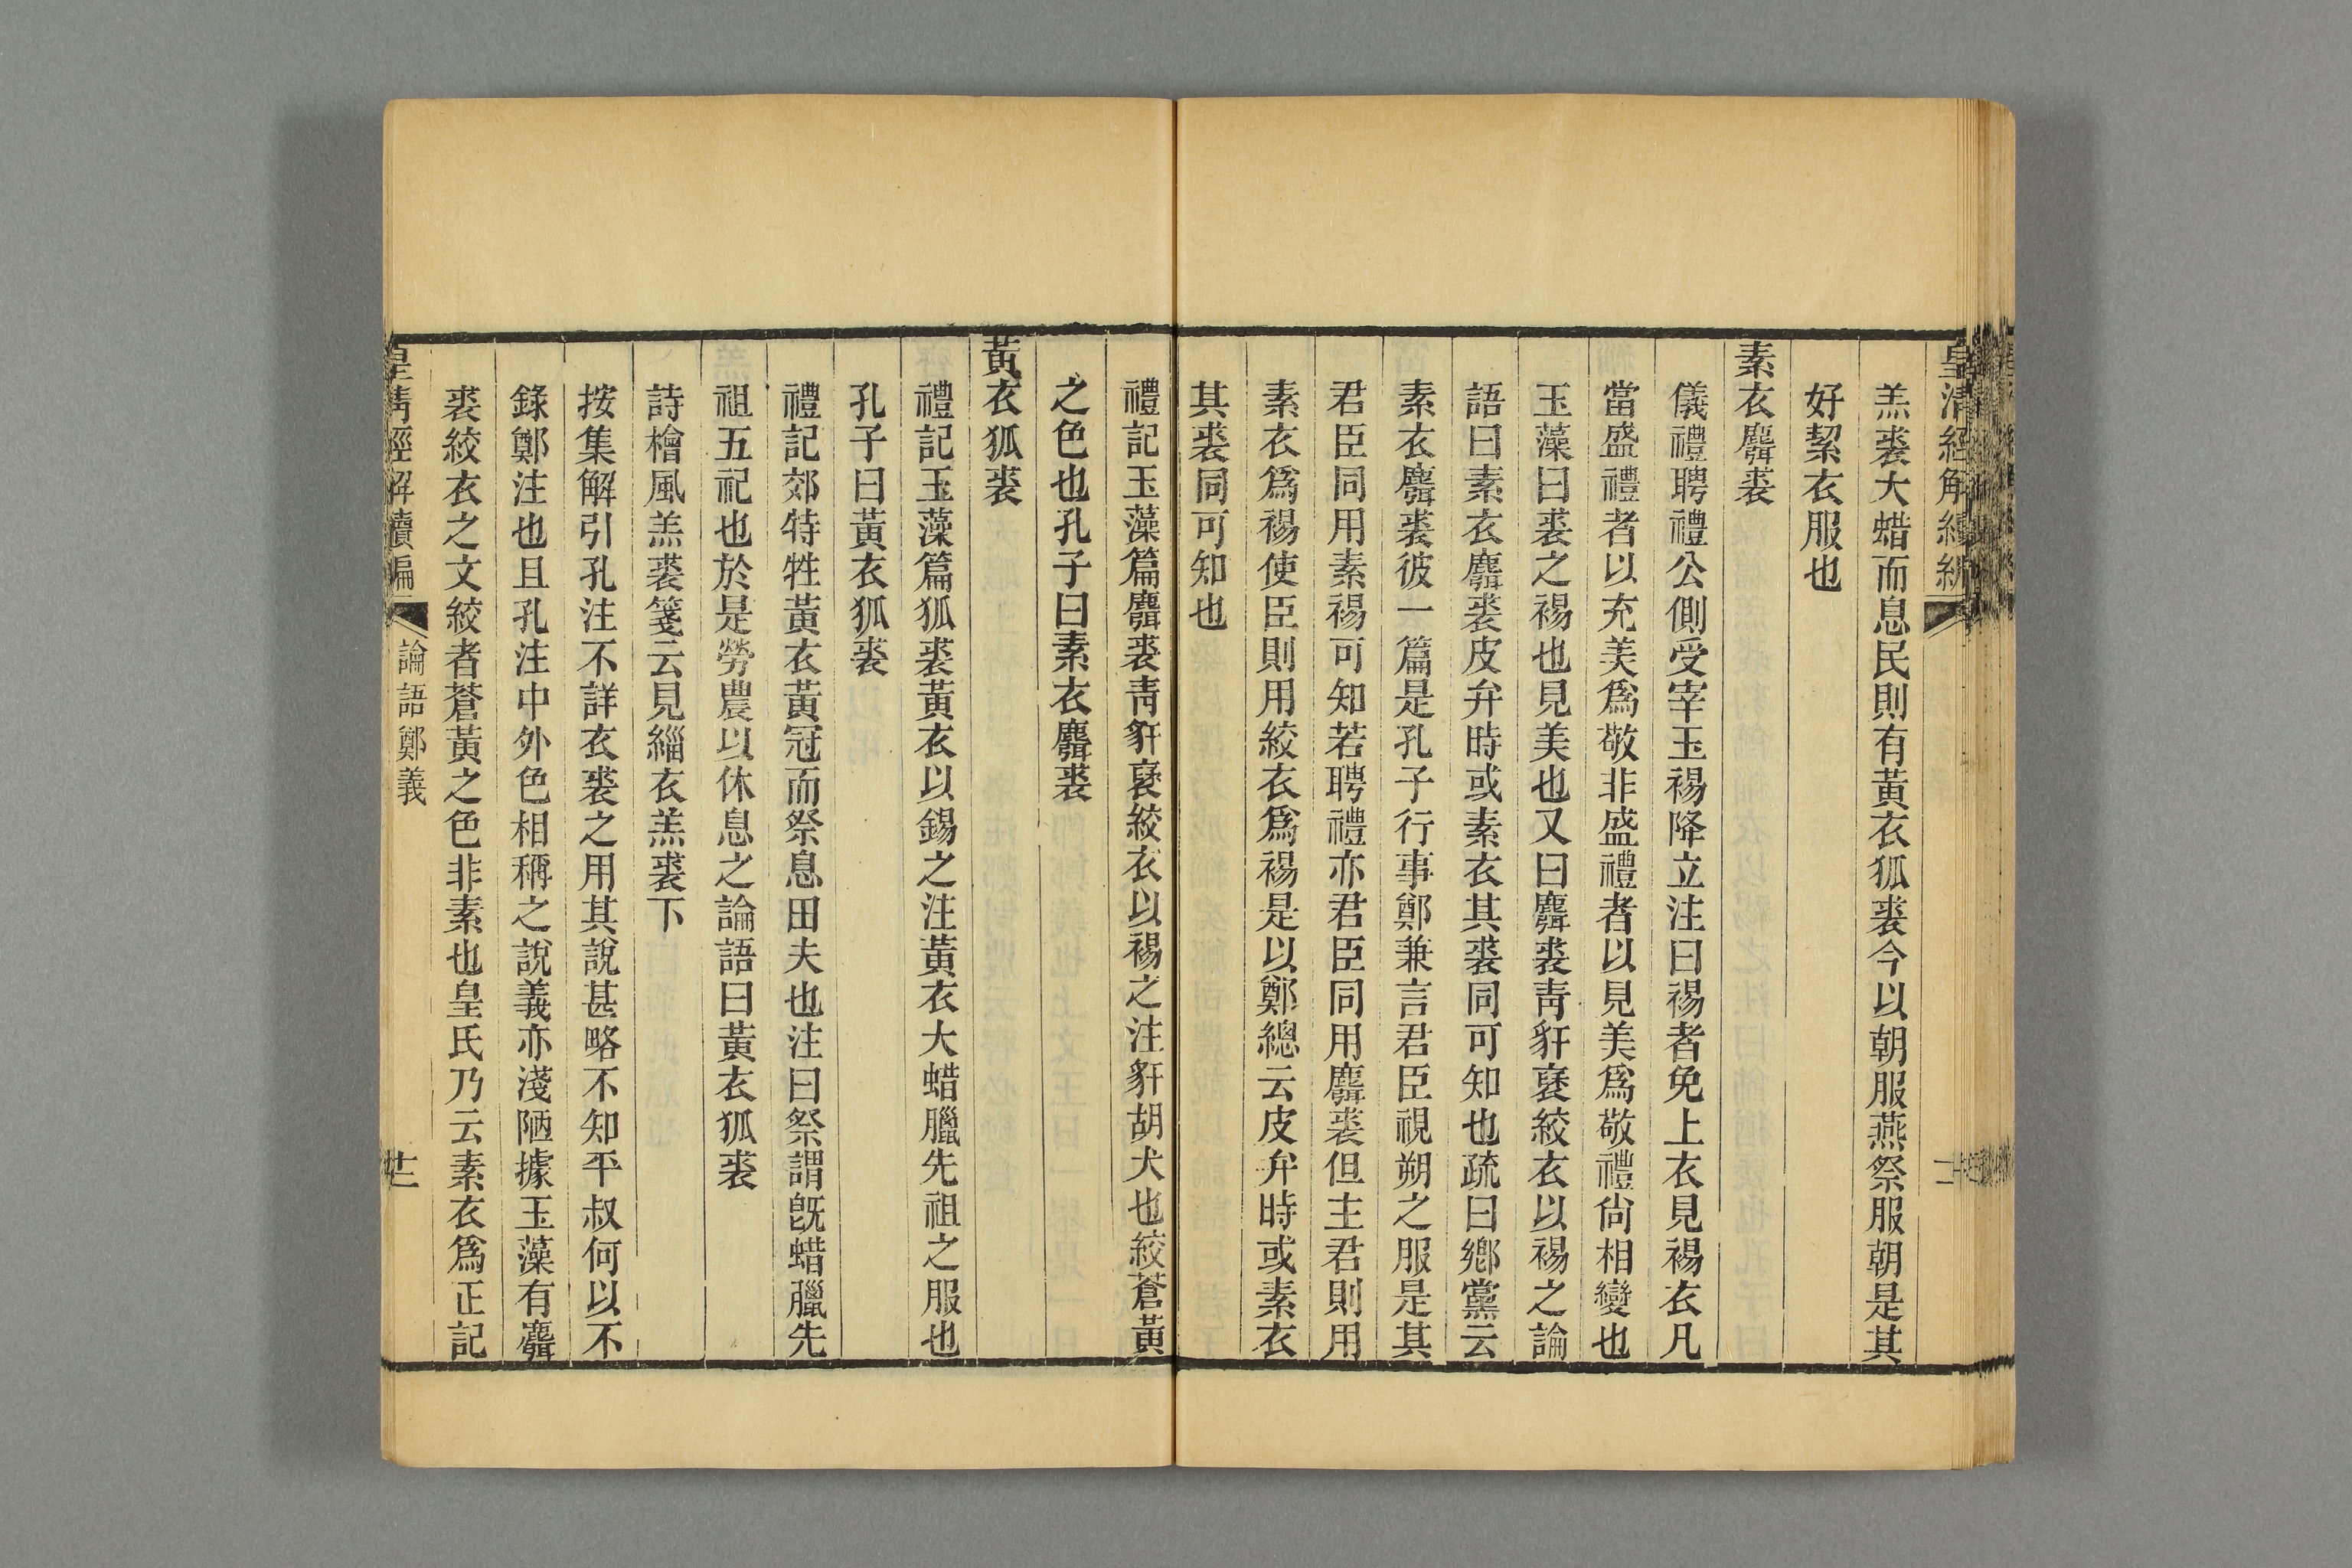 皇清經解續編
羔裘大蜡而息民則有黃衣狐裘今以朝服燕祭服朝是其
好絜衣服也
素衣麑裘
儀禮聘禮公側受宰玉裼降立注曰裼者免上衣見裼衣凡
當盛禮者以充美爲敬非盛禮者以見美爲敬禮尙相變也
玉藻曰裘之裼也見美也又曰麛裘靑豻褎絞衣以裼之論
語曰素衣麛裘皮弁時或素衣其裘同可知也疏曰鄕黨云
素衣麛裘彼一篇是孔子行事鄭兼言君臣視朔之服是其
君臣同用素裼可知若聘禮亦君臣同用麛裘但主君則用
素衣爲裼使臣則用絞衣爲裼是以鄭總云皮弁時或素衣
其裘同可知也
禮記玉藻篇麛裘靑豻褎絞衣以裼之注豻胡犬也絞蒼黃
之色也孔子曰素衣麛裘
黃衣狐裘
禮記玉藻篇狐裘黃衣以錫之注黃衣大蜡臘先祖之服也
孔子曰黃衣狐裘
禮記郊特牲黃衣黃冠而祭息田夫也注曰祭謂旣蜡臘先
祖五祀也於是勞農以休息之論語曰黃衣狐裘
詩檜風羔裘箋云見緇衣羔裘下
按集解引孔注不詳衣裘之用其說甚略不知平叔何以不
錄鄭注也且孔注中外色相稱之說義亦淺陋據玉藻有麛
裘絞衣之文絞者蒼黃之色非素也皇氏乃云素衣爲正記
皇清經解續編
論語鄭義
廿二